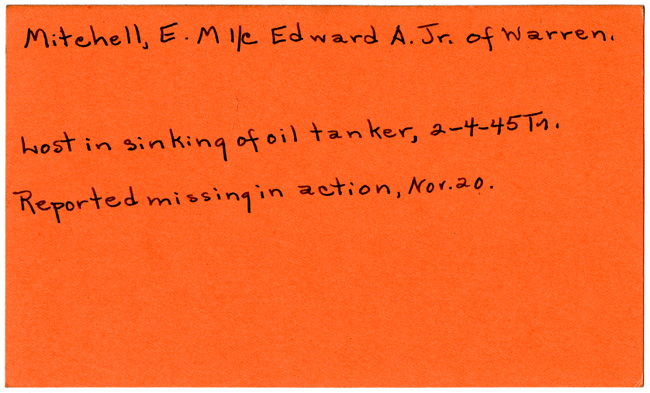 Mitchell, E. M 1/c Edward A. Jr. of Warren.
Lost in sinking of oil tanker, 2-4-45 Tr.
Reported missing in action, Nov. 20.